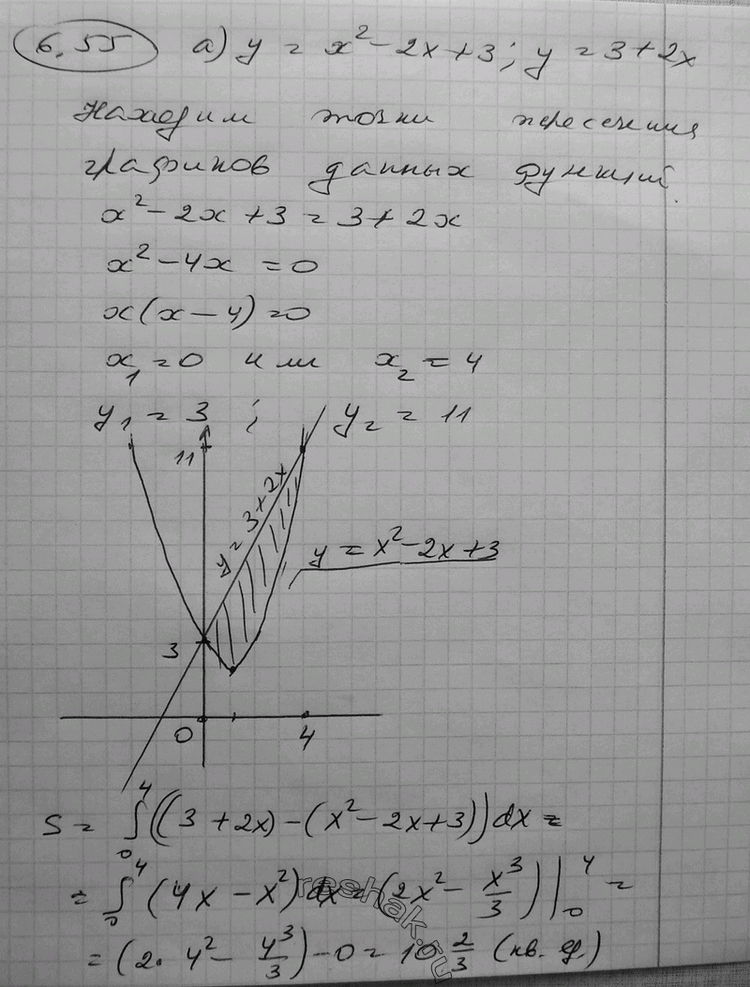 6.55 а) y = x² - 2x + 3; y = 3 + 2x
Находим точки пересечения
графиков данных функций.
x² - 2x + 3 = 3 + 2x
x² - 4x = 0
x(x - 4) = 0
x₁ = 0 или x₂ = 4
y₁ = 3 ; y₂ = 11
11
y = 3 + 2x
y = x² - 2x + 3
3
0 4
S = ∫₀⁴ ((3 + 2x) - (x² - 2x + 3)) dx =
= ∫₀⁴ (4x - x²) dx = (2x² - x³/3) |₀⁴ =
= (2 · 4² - 4³/3) - 0 = 10 2/3 (кв. ед.)
reshak.ru